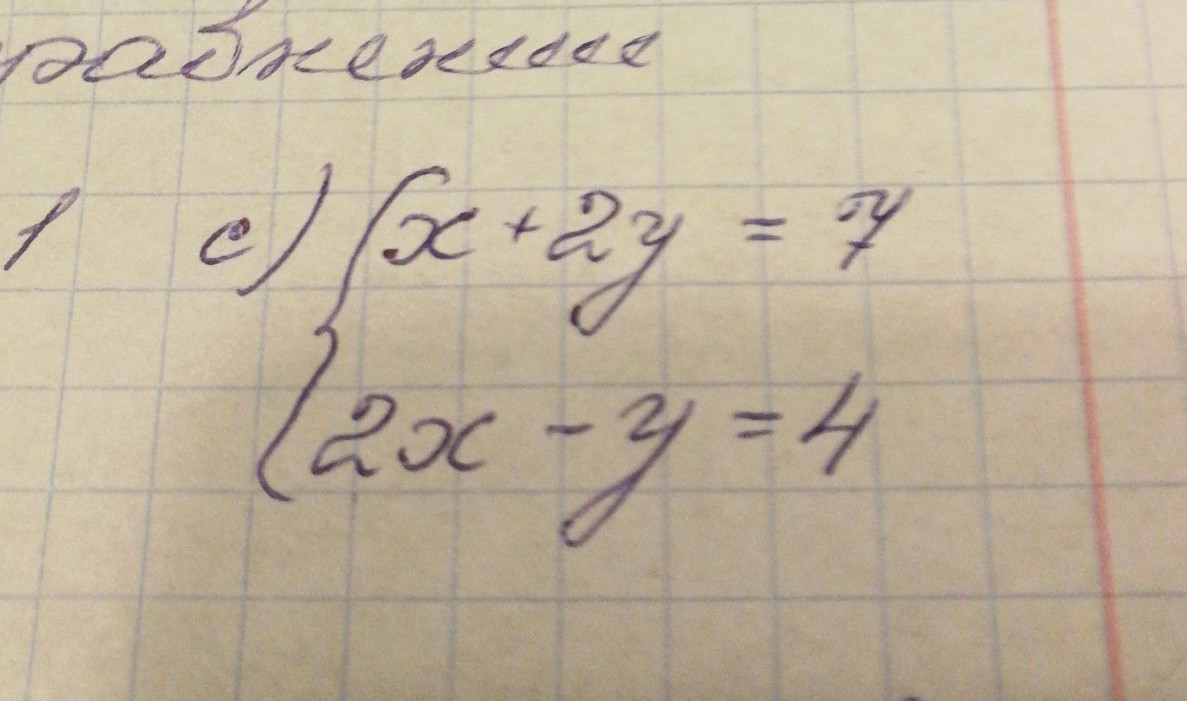 уравнения
1 с) { x + 2y = 7
2x - y = 4